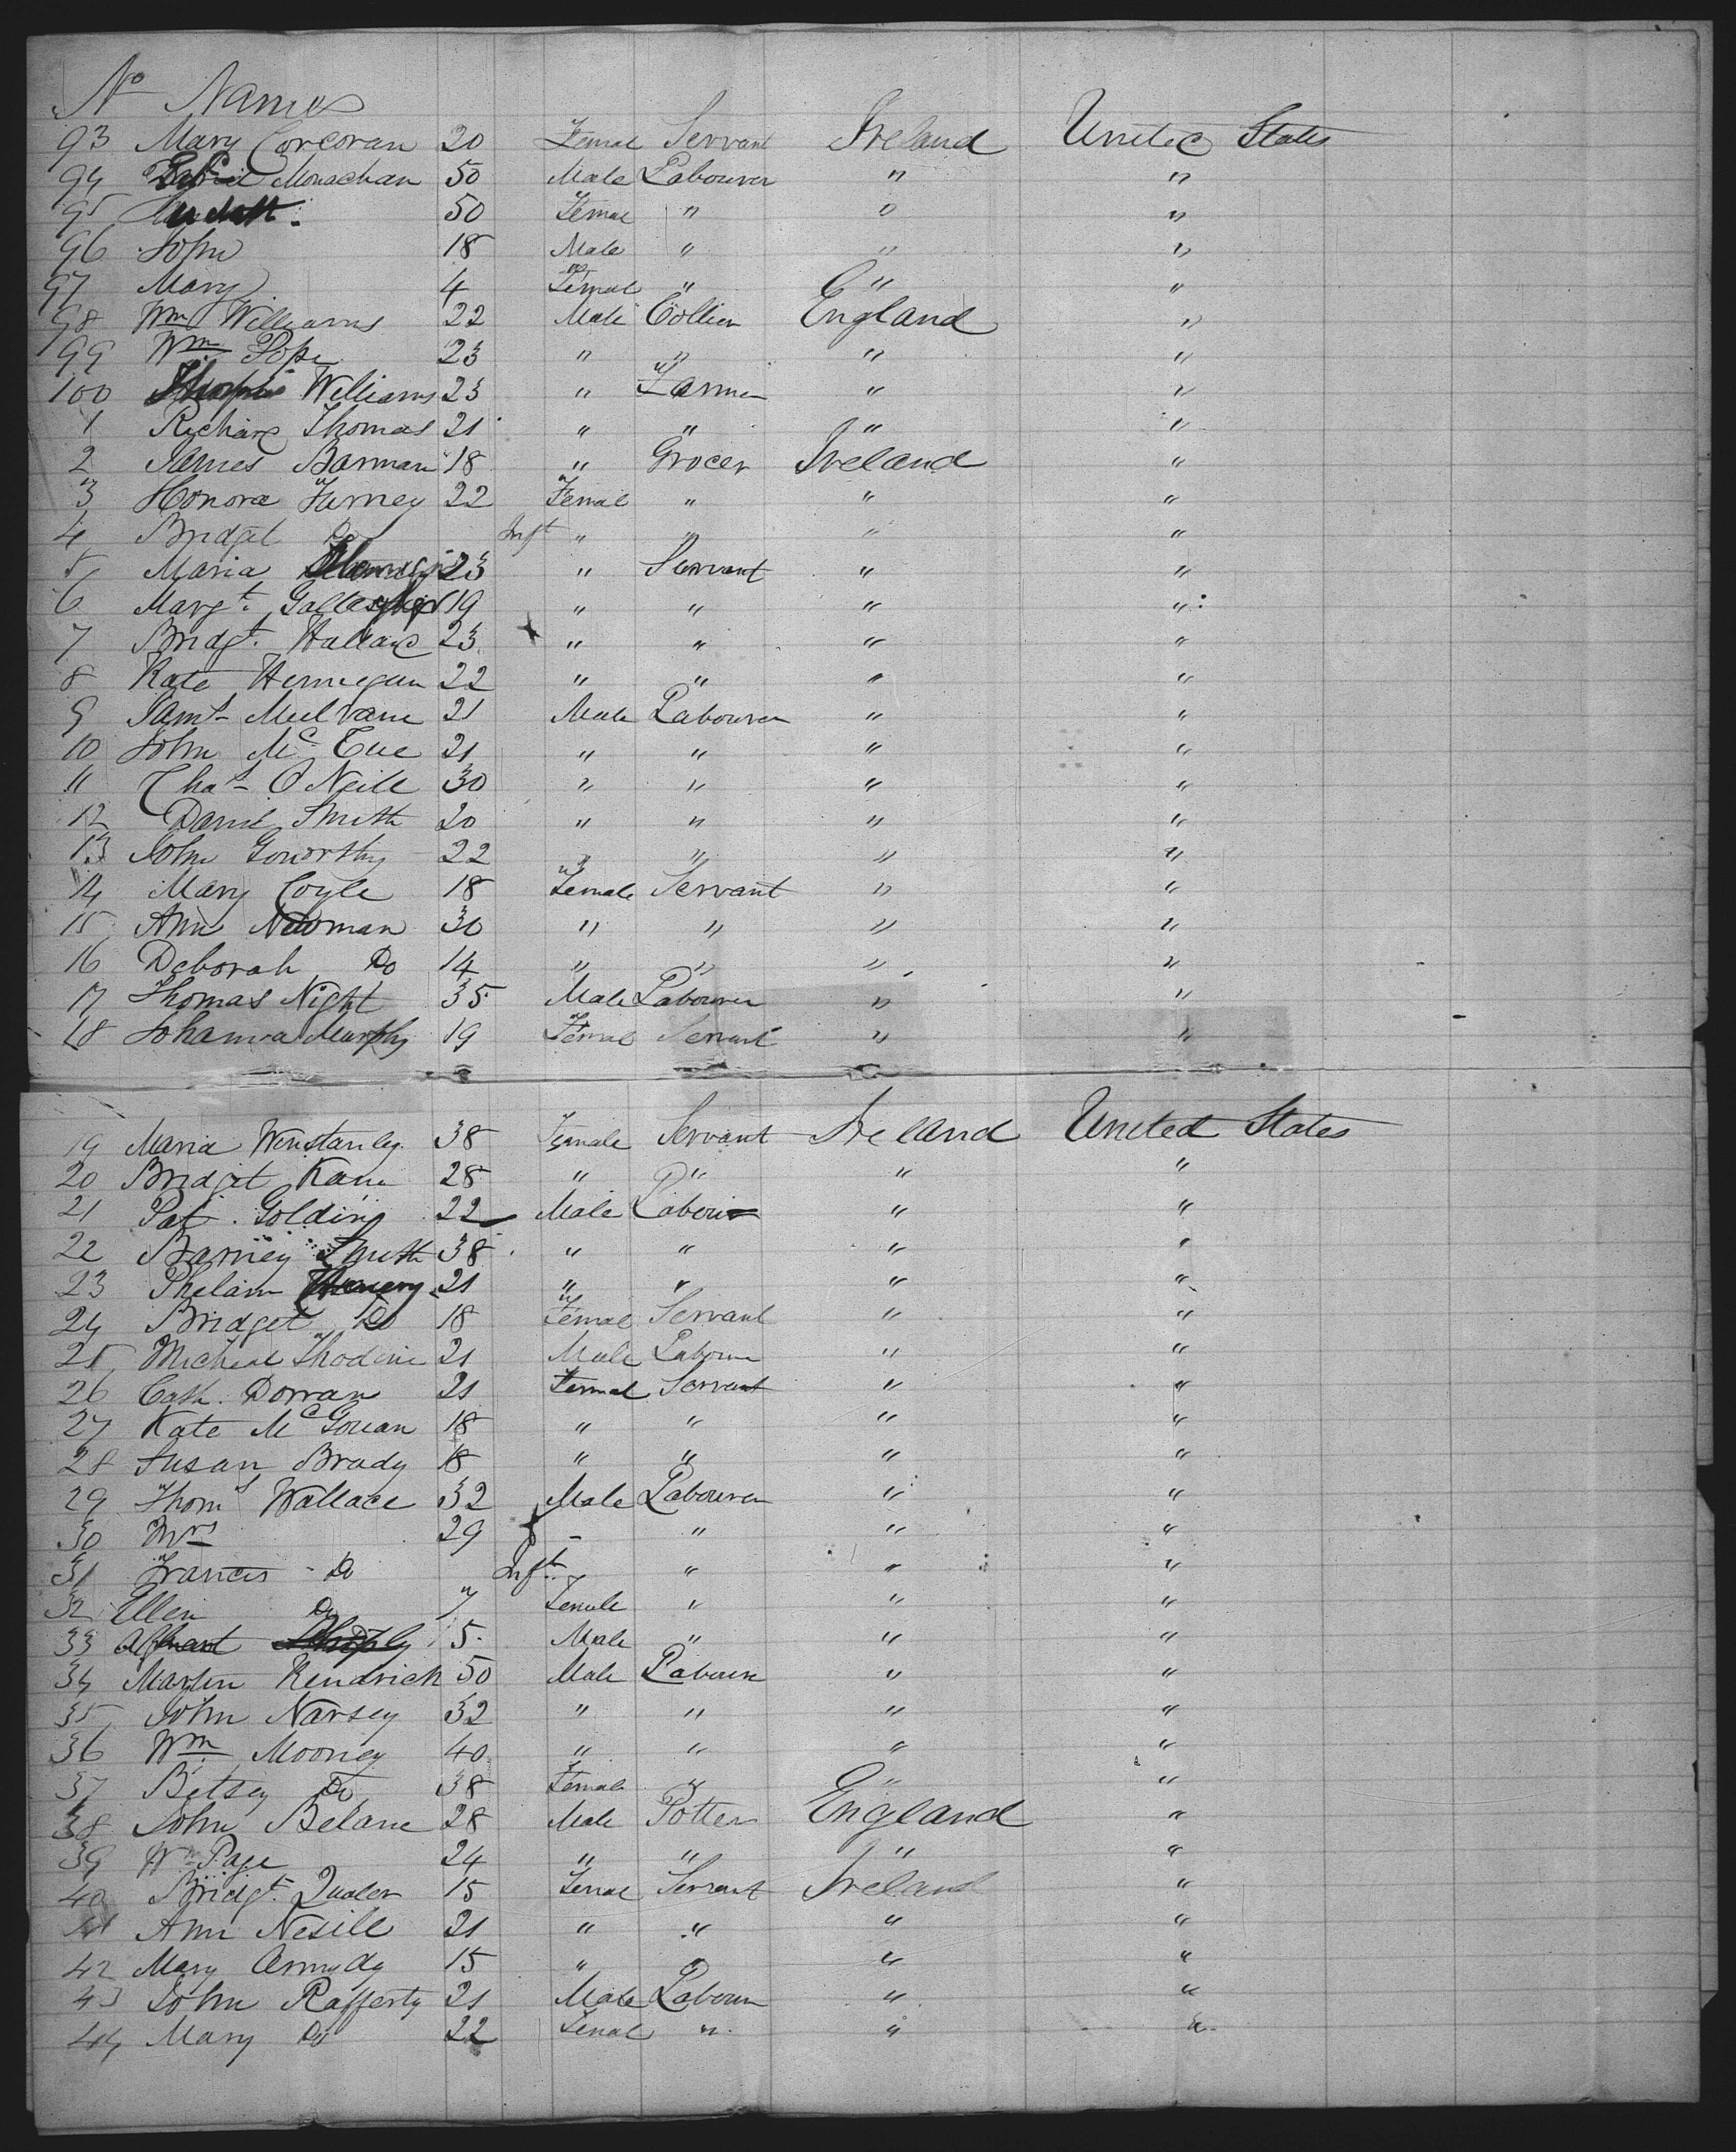 No Names
93 Mary Corcoran 20 Femal Servant Ireland United States
94 Monachan 50 Male Labourer " "
95 50 Femal " " "
96 John 18 Male " " "
97 Mary 4 Femal " " "
98 Wm Williams 22 Male Collier England "
99 Wm Pope 23 " " " "
100 Williams 23 " Farmer " "
1 Richard Thomas 21 " " " "
2 James Barman 18 " Grocer Ireland "
3 Honora Furney 22 Femal " " "
4 Bridget Do Inft " " " "
5 Maria 23 " Servant " "
6 Margt. Gallagher 19 " " " "
7 Bridgt. Hallard 23 " " " "
8 Kate Hennegan 22 " " " "
9 Jams Mulvane 21 Male Labourer " "
10 John Mc Cue 21 " " " "
11 Thas O Neill 30 " " " "
12 Daniel Smith 20 " " " "
13 John Goworthy 22 " " " "
14 Mary Coyle 18 Female Servant " "
15 Ann Newman 30 " " " "
16 Deborah Do 14 " " " "
17 Thomas Night 35 Male Labourer " "
18 Johanna Murphy 19 Femal Servant " "
19 Maria Winstanley 38 Female Servant Ireland United States
20 Bridget Kane 28 " " " "
21 Pat. Golding 22 Male Labour " "
22 Barney Smith 38 " " " "
23 Phelam 21 " " " "
24 Bridget Do 18 Femal Servant " "
25 Micheal Thodine 21 Male Labourer " "
26 Cath. Dorran 21 Femal Servant " "
27 Kate Mc Gouan 18 " " " "
28 Susan Brady 18 " " " "
29 Thoms Wallace 32 Male Labourer " "
30 Mrs 29 - " " "
31 Frances - Do Inft. " " "
32 Ellen Do 7 Female " " "
33 5 Male " " "
34 Martin Kendrick 50 Male Labourer " "
35 John Narsey 32 " " " "
36 Wm Mooney 40 " " " "
37 Betsey Do 38 Female " " "
38 John Belane 28 Male Potter England "
39 Wm Page 24 " " " "
40 Bridgt. Qualer 15 Femal Servant Ireland "
41 Ann Nesill 21 " " " "
42 Mary 15 " " "
43 John Rafferty 21 Male Labour " "
44 Mary Do 22 Femal " " "